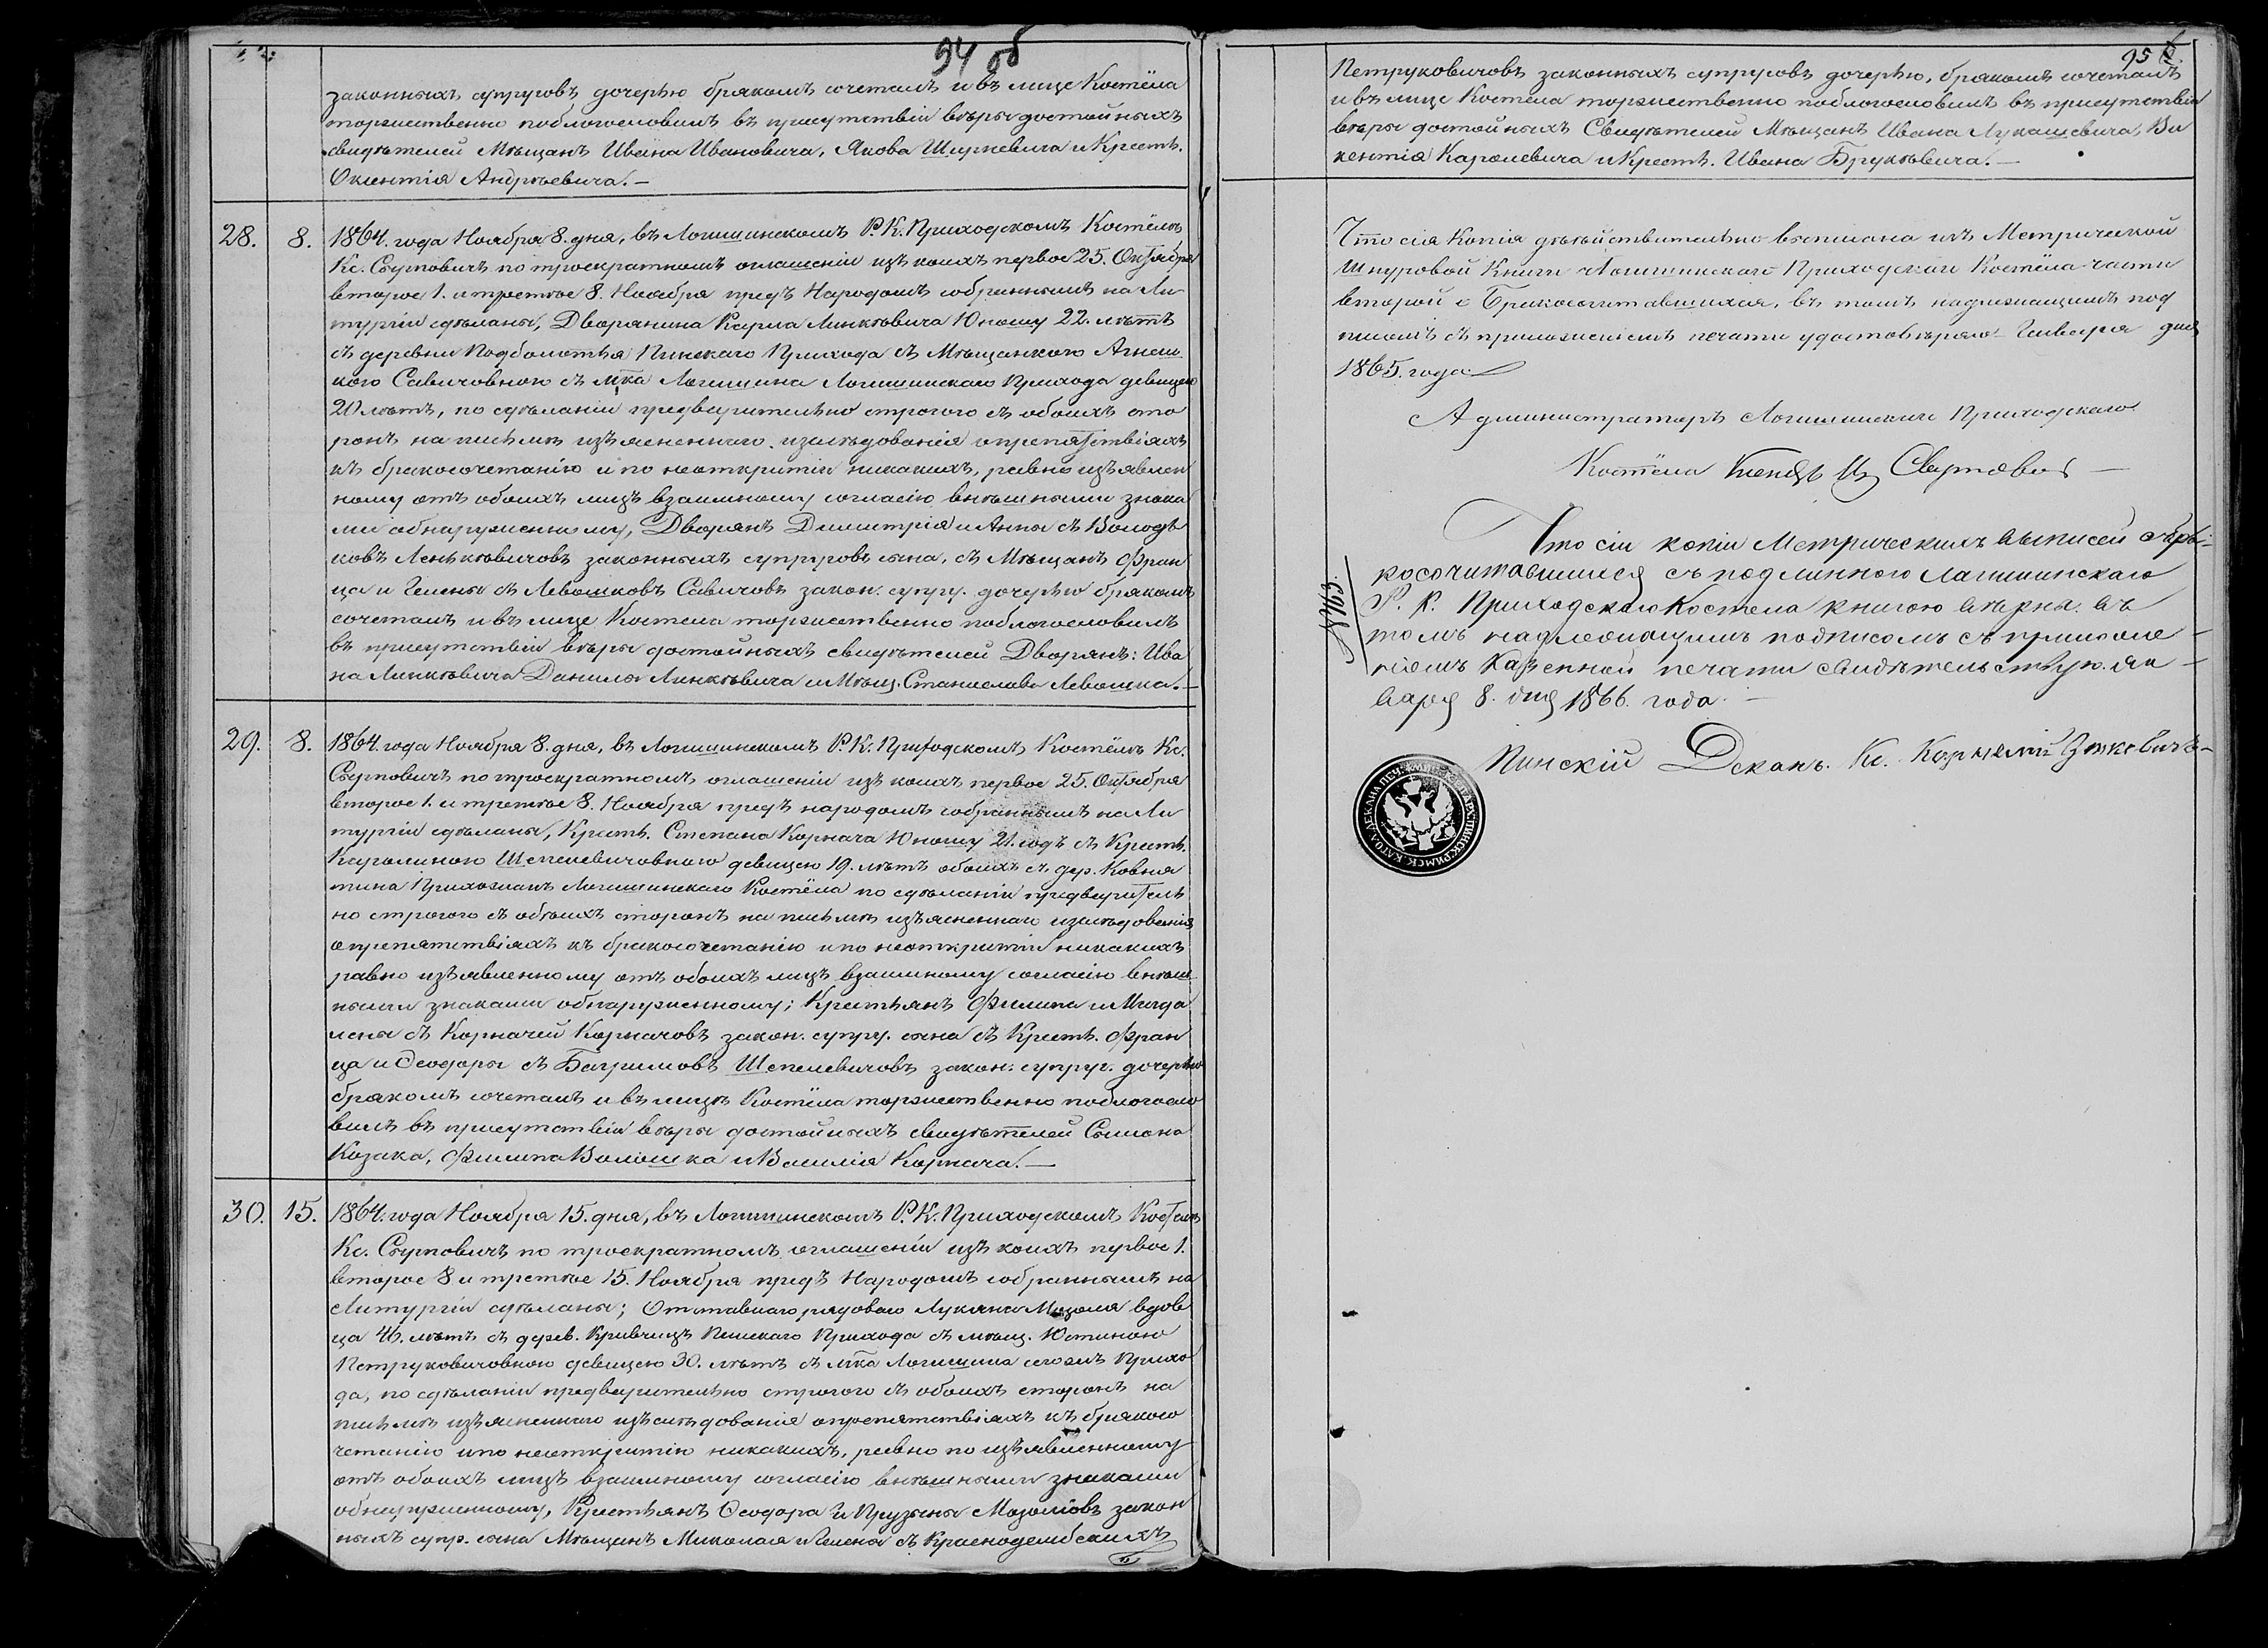 94 об
законныхъ супруговъ дочерью бракомъ сочеталъ и въ лице Костёла
торжественно поблогословилъ въ присутствіи вѣры достойныхъ
свидѣтелей Мѣщанъ Ивана Ивановича, Якова Шуркевича и Крестъ.
Окентія Андрѣевича. —
28. 8. 1864. года Ноября 8. дня, въ Логишинскомъ Р. К. Приходскомъ Костёлѣ
Кс. по троекратномъ оглашеніи изъ коихъ первое 25. Октября
второе 1. и третье 8. Ноября предъ Народомъ собраннымъ на Ли
тургіи сдѣланы, Дворянина Карла Линкѣвича Юношу 22. лѣтъ
съ деревни Подболотья Пинскаго Прихода съ Мѣщанкою Агнеш
кою Савичовною съ м^тка Логишина Логишинскаго Прихода девицею
20 лѣтъ, по сдѣланіи предварительно строгого съ обоихъ сто
ронъ на письмѣ изъясненного изслѣдованія о препятствіяхъ
къ бракосочетанію и по неоткритіи никакихъ, равно изъявлен
ному отъ обоихъ лицъ взаимному согласію внѣшными знака
ми обнаруженному, Дворянъ Димитрія и Анны съ Володь
ковъ Ленькѣвичовъ законныхъ супруговъ сына, съ Мѣщанъ Фран
ца и Гелены съ Левошковъ Савичовъ закон. супру. дочерью бракомъ
сочеталъ и въ лице Костела торжественно поблогословилъ
въ присутствіи вѣры достойныхъ свидѣтелей Дворянъ: Ива
на Линкѣвича Данила Линкѣвича и Мѣщ. Станислава Левошка. —
29. 8. 1864. года Ноября 8. дня, въ Логишинскомъ Р. К. Приходскомъ Костёлѣ Кс.
по троекратномъ оглашеніи изъ коихъ первое 25. Октября
второе 1. и третье 8. Ноября предъ народомъ собраннымъ на Ли
тургіи сдѣланы, Крестъ. Степана Корнача Юношу 21. годъ съ Крестъ.
Каролиною Шепелевичовною девицею 19. лѣтъ обоихъ съ дер. Ковня
тина Прихожанъ Логишинскаго Костёла по сдѣланіи предварителъ
но строгого съ обѣихъ сторонъ на письмѣ изъясненнаго изслѣдованія
о препятствіяхъ къ бракосочетанію и по неоткритіи никакихъ
равно изъявленному отъ обоихъ лицъ взаимному согласію внѣш
ными знаками обнаруженному; Крестьянъ Филипа и Магда
лены съ Корначей Корначовъ закон. супру. сына съ Крестъ. Фран
ца и Ѳеодоры съ Багримовъ Шепелевичовъ закон. супруг. дочерью
бракомъ сочеталъ и въ лицѣ Костёла торжественно поблогосло
вилъ въ присутствіи вѣры достойныхъ свидѣтелей Сымона
Козака, Филипа Волошка и Василія Корнача. —
30. 15. 1864. года Ноября 15. дня, въ Логишинскомъ Р. К. Приходскомъ Костелѣ
Кс. по троекратномъ оглашеніи изъ коихъ первое 1.
второе 8 и третье 15. Ноября предъ Народомъ собраннымъ на
Литургіи сдѣланы; Отставнаго рядоваго Лукяна Мозоля вдов
ца 46. лѣтъ съ дерев. Кривчицъ Пинскаго Прихода съ мѣщ. Юстиною
Петруковичовною девицею 30. лѣтъ съ м^тка Логишина сегожъ Прихо
да, по сдѣланіи предварительно строгого съ обоихъ сторонъ на
письмѣ изъясненнаго изъслѣдованія о препятствіяхъ къ бракосо
четанію и по неоткритію никакихъ, равно по изъявленному
отъ обоихъ лицъ взаимному согласію внѣшными знаками
обнаруженному, Крестьянъ Ѳеодора и Прузыны Мозолювъ закон
ныхъ супр. сына Мѣщанъ Миколая и Гелены съ Краснодембскихъ
95
Петруковичовъ законныхъ супруговъ дочерью, бракомъ сочеталъ
и въ лице Костёла торжественно поблогословилъ въ присутствіи
вѣры достойныхъ Свидѣтелей Мѣщанъ Ивана Лукашевича, Ви
кентія Каролевича и Крестъ. Ивана Брукѣвича. —
Что сія Копія дѣйствительно выписана изъ Метрической
Шнуровой Книги Логишинскаго Приходскаго Костёла части
второй о Бракосочитавшихся, въ томъ надлежащимъ под
писомъ съ приложеніемъ печати удостовѣряю Генваря дня
1865. года
Администраторъ Логишинскаго Приходскаго
Костёла Ксендзъ
Что сіи копіи Метрическихъ выписей о бра-
косочитавшихся съ подлинною Логишинскаго
Р. К. Приходскаго Костела книгою вѣрны. въ
томъ надлежащимъ подписомъ съ приложе-
ніемъ Казенной печати свидѣтельствую. Ян-
варя 8. дня 1866. года. —
№ 63.
Пинскій Деканъ. Кс.